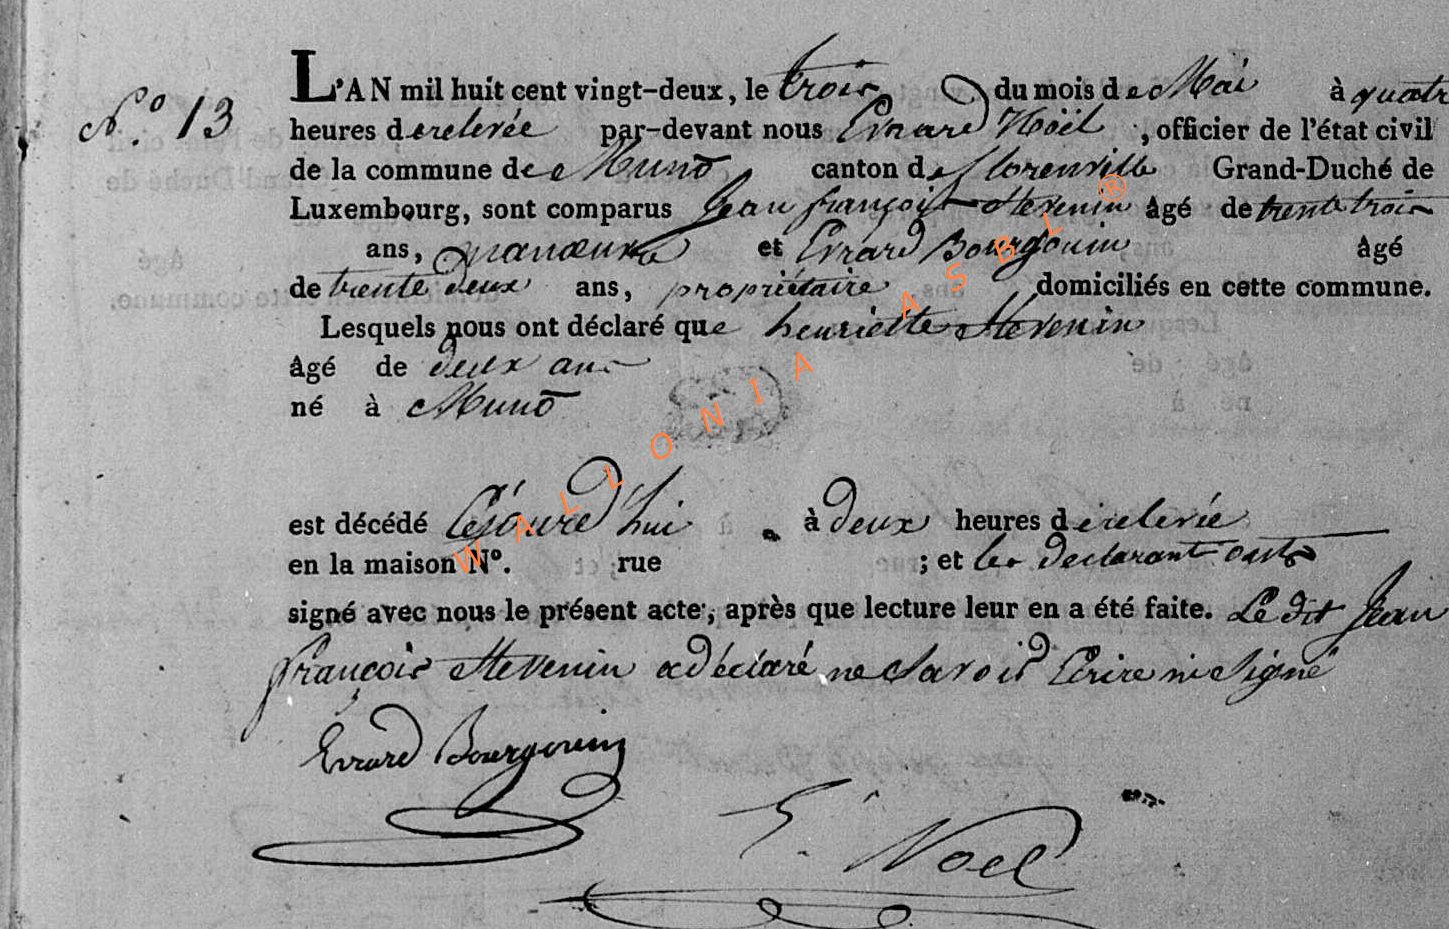 N.° 13
L'AN mil huit cent vingt-deux, le trois du mois de Mai à quatre
heures de relevée par-devant nous Evrard Noël, officier de l'état civil
de la commune de Muno canton de florenville Grand-Duché de
Luxembourg, sont comparus Jean françois Stevenin âgé de trente trois
ans, manœuvre et Evrard Bourgouin âgé
de trente deux ans, propriétaire domiciliés en cette commune.
Lesquels nous ont déclaré que henriette Stevenin
âgé de deux ans
né à Muno
est décédé Cejourd'hui à deux heures de relevée
en la maison N°. rue ; et les declarant ont
signé avec nous le présent acte, après que lecture leur en a été faite. Le dit Jean
françois Stevenin a déclaré ne savoir Ecrire ni Signé
Evrard Bourgouin
E. Noël
WALLONIA ASBL ®